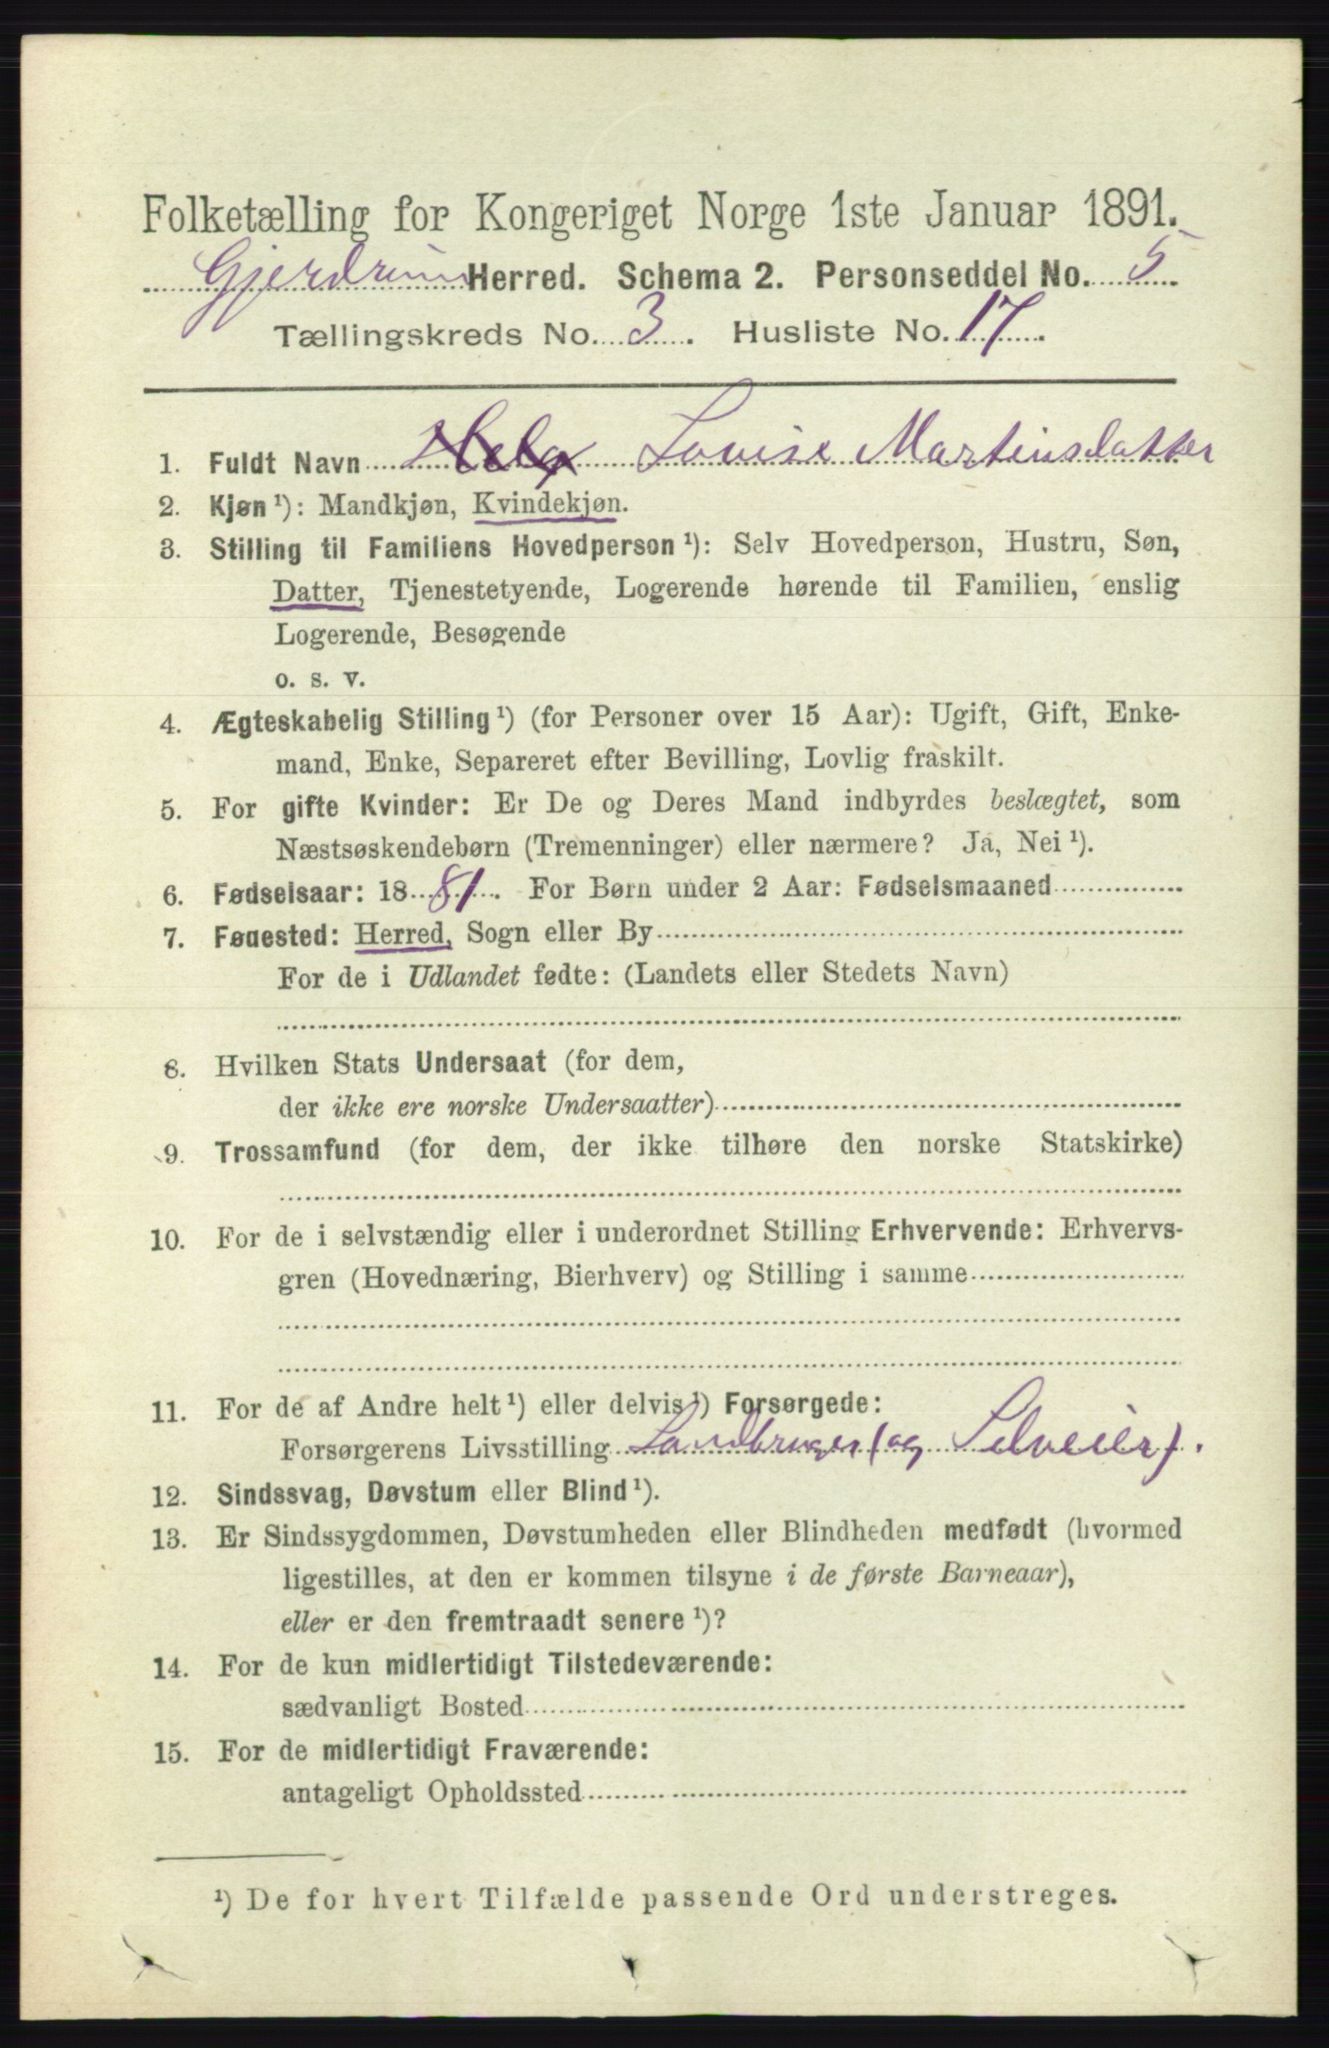 Folketælling for Kongeriget Norge 1ste Januar 1891.
Gjerdrum Herred. Schema 2. Personseddel No. 5
Tællingskreds No. 3. Husliste No. 17.
1. Fuldt Navn Louise Martinsdatter
2. Kjøn ¹): Mandkjøn, Kvindekjøn.
3. Stilling til Familiens Hovedperson ¹): Selv Hovedperson, Hustru, Søn,
Datter, Tjenestetyende, Logerende hørende til Familien, enslig
Logerende, Besøgende
o. s. v.
4. Ægteskabelig Stilling ¹) (for Personer over 15 Aar): Ugift, Gift, Enke-
mand, Enke, Separeret efter Bevilling, Lovlig fraskilt.
5. For gifte Kvinder: Er De og Deres Mand indbyrdes beslægtet, som
Næstsøskendebørn (Tremenninger) eller nærmere? Ja, Nei ¹).
6. Fødselsaar: 1881. For Børn under 2 Aar: Fødselsmaaned
7. Føuested: Herred, Sogn eller By
For de i Udlandet fødte: (Landets eller Stedets Navn)
8. Hvilken Stats Undersaat (for dem,
der ikke ere norske Undersaatter)
9. Trossamfund (for dem, der ikke tilhøre den norske Statskirke)
10. For de i selvstændig eller i underordnet Stilling Erhvervende: Erhvervs-
gren (Hovednæring, Bierhverv) og Stilling i samme
11. For de af Andre helt ¹) eller delvis ¹) Forsørgede:
Forsørgerens Livsstilling Landbruger (og Selveier).
12. Sindssvag, Døvstum eller Blind ¹).
13. Er Sindssygdommen, Døvstumheden eller Blindheden medfødt (hvormed
ligestilles, at den er kommen tilsyne i de første Barneaar),
eller er den fremtraadt senere ¹)?
14. For de kun midlertidigt Tilstedeværende:
sædvanligt Bosted
15. For de midlertidigt Fraværende:
antageligt Opholdssted
¹) De for hvert Tilfælde passende Ord understreges.